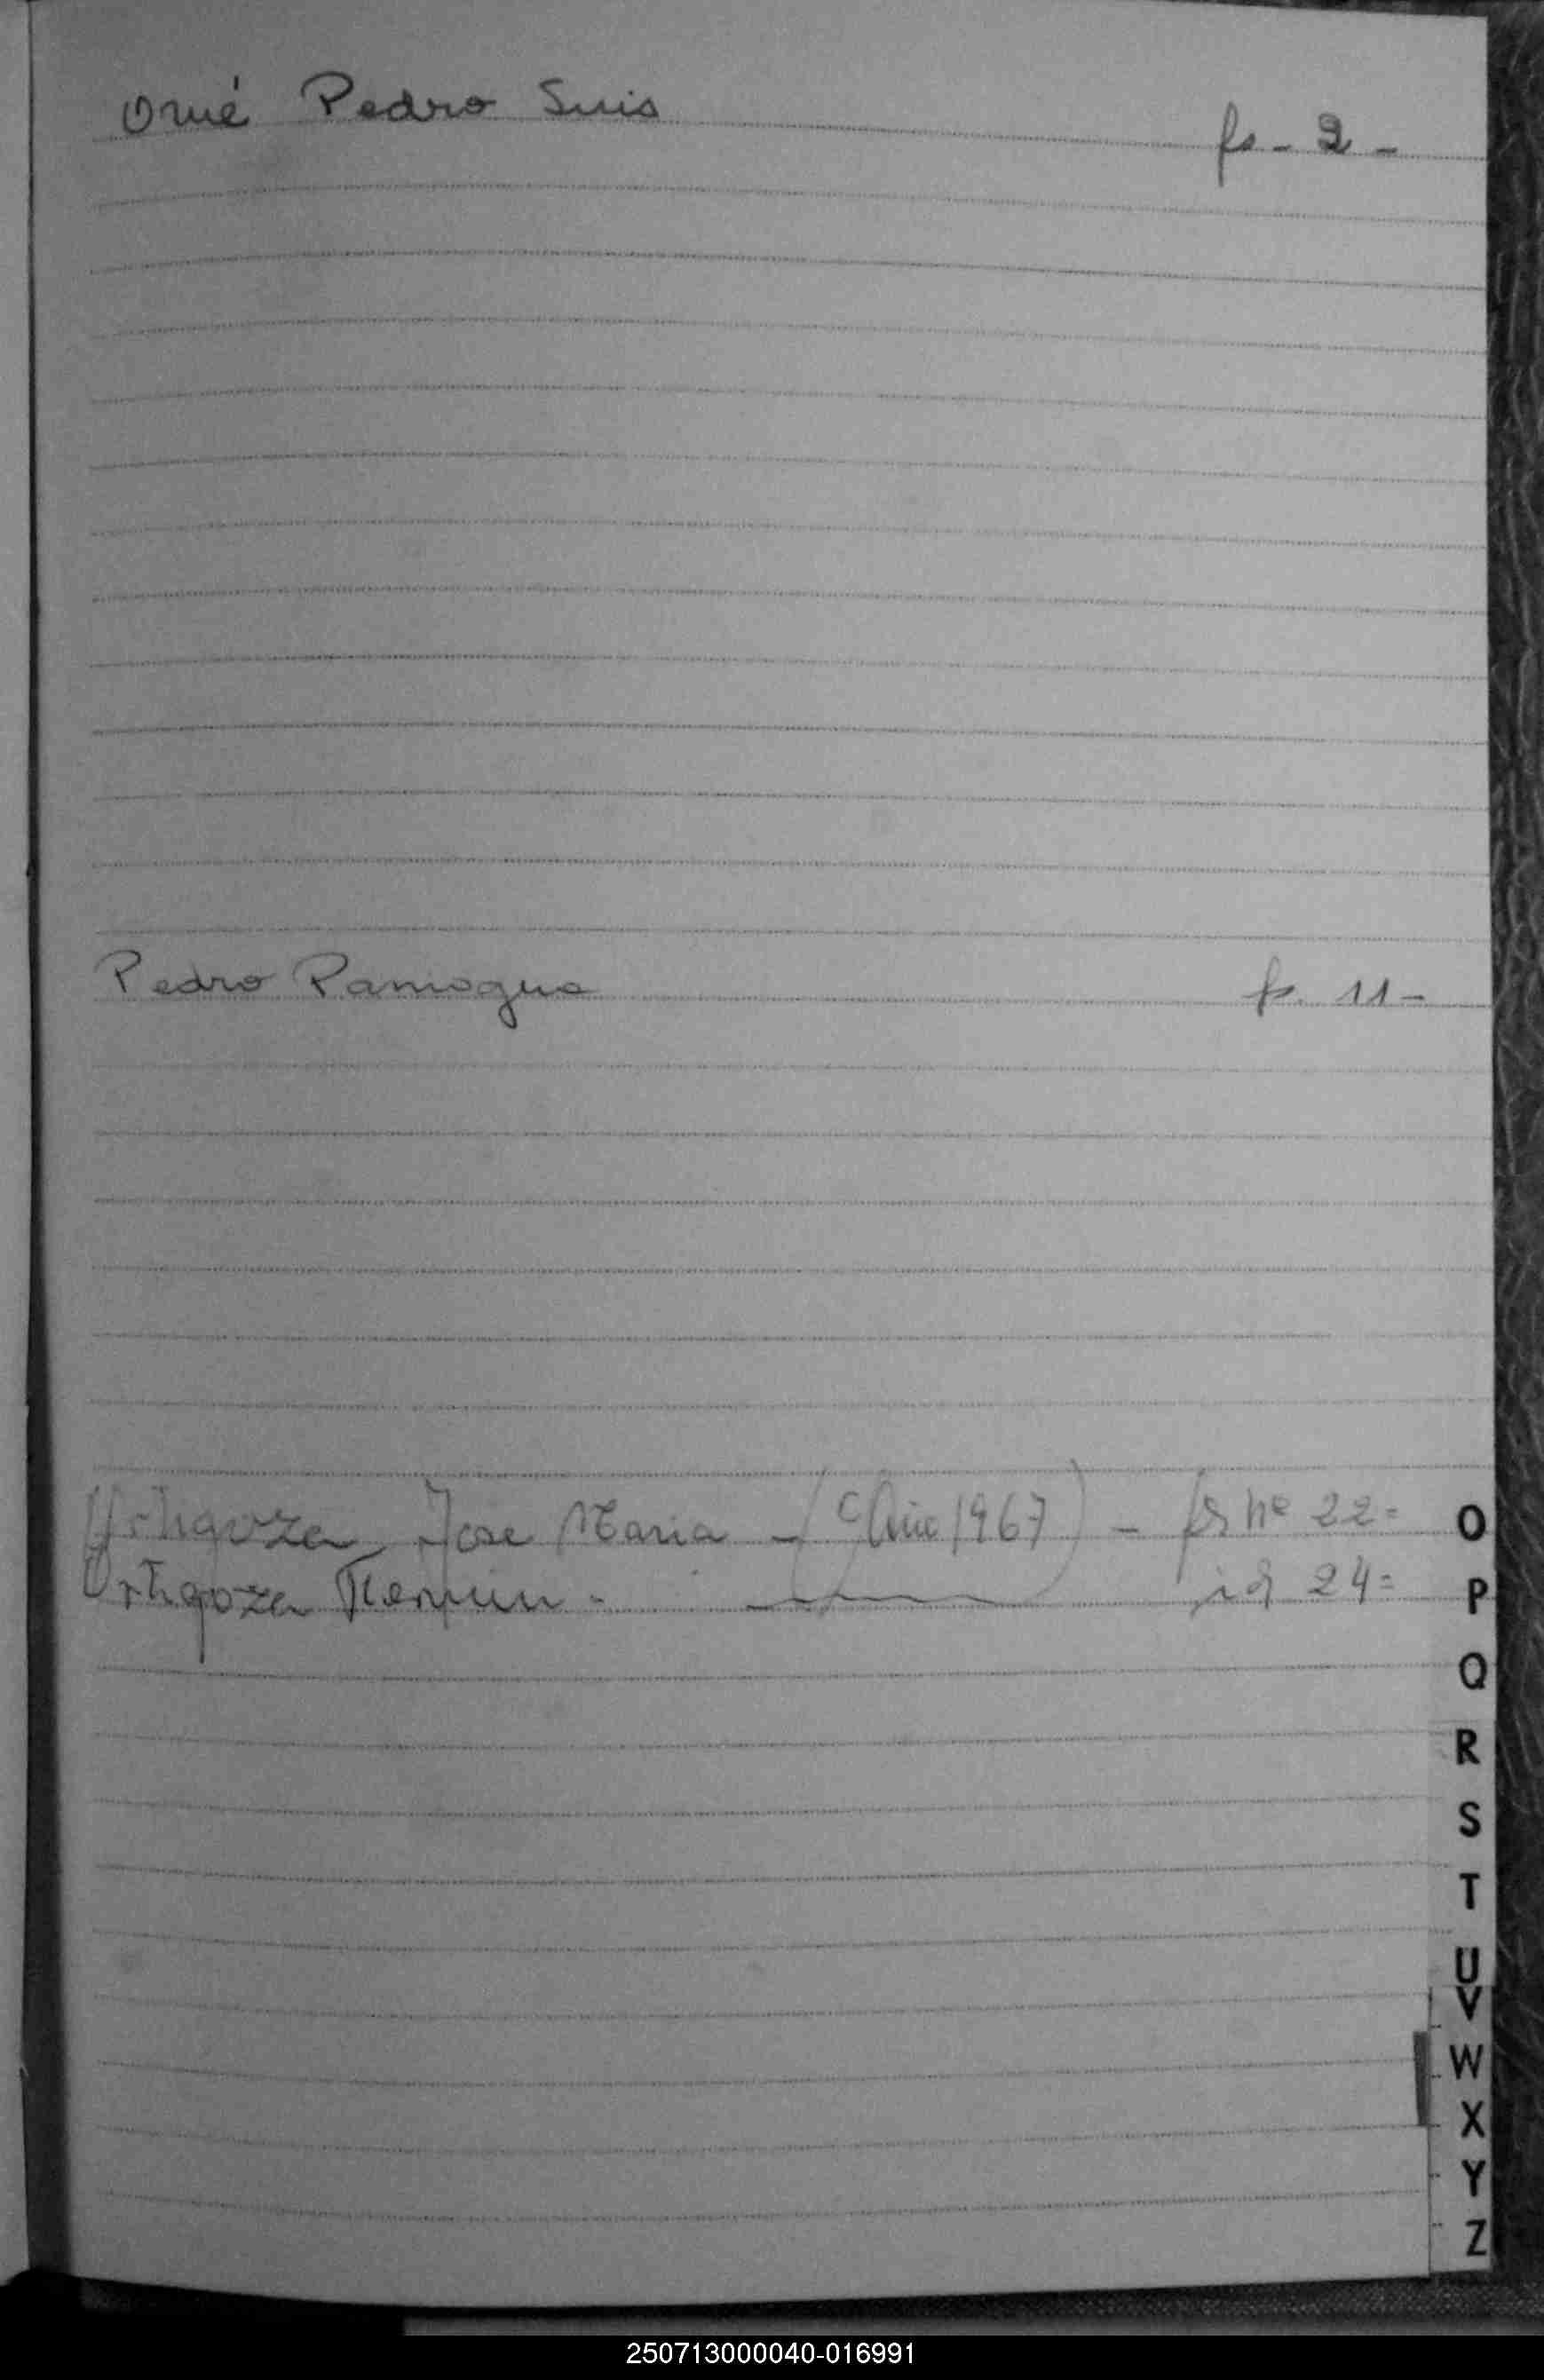 Orué Pedro Luis fs - 2 -
Pedro Paniagua fs. 11 -
Ortigoza Jose Maria - (Año 1967) - fs nº 22 =
Ortigoza Fermin - id 24 =
O
P
Q
R
S
T
U
V
W
X
Y
Z
250713000040-016991